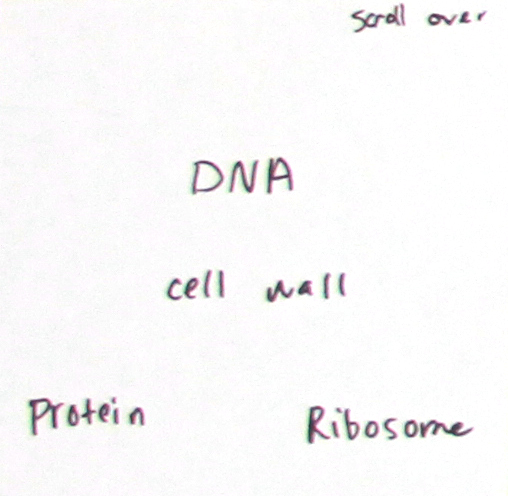 scroll over
DNA
cell wall
Protein Ribosome